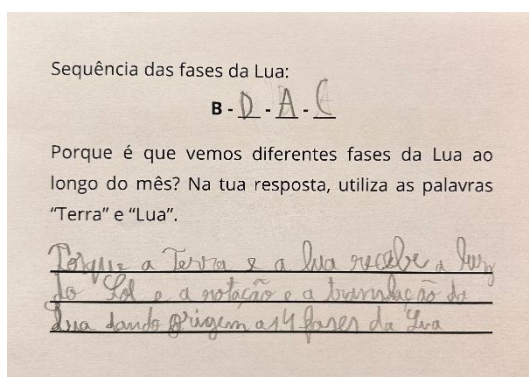 Sequência das fases da Lua:
B - D - A - C
Porque é que vemos diferentes fases da Lua ao
longo do mês? Na tua resposta, utiliza as palavras
“Terra” e “Lua”.
Porque a Terra e a lua recebe a luz
do Sol e a rotação e a translação da
Lua dando origem as 4 fases da Lua